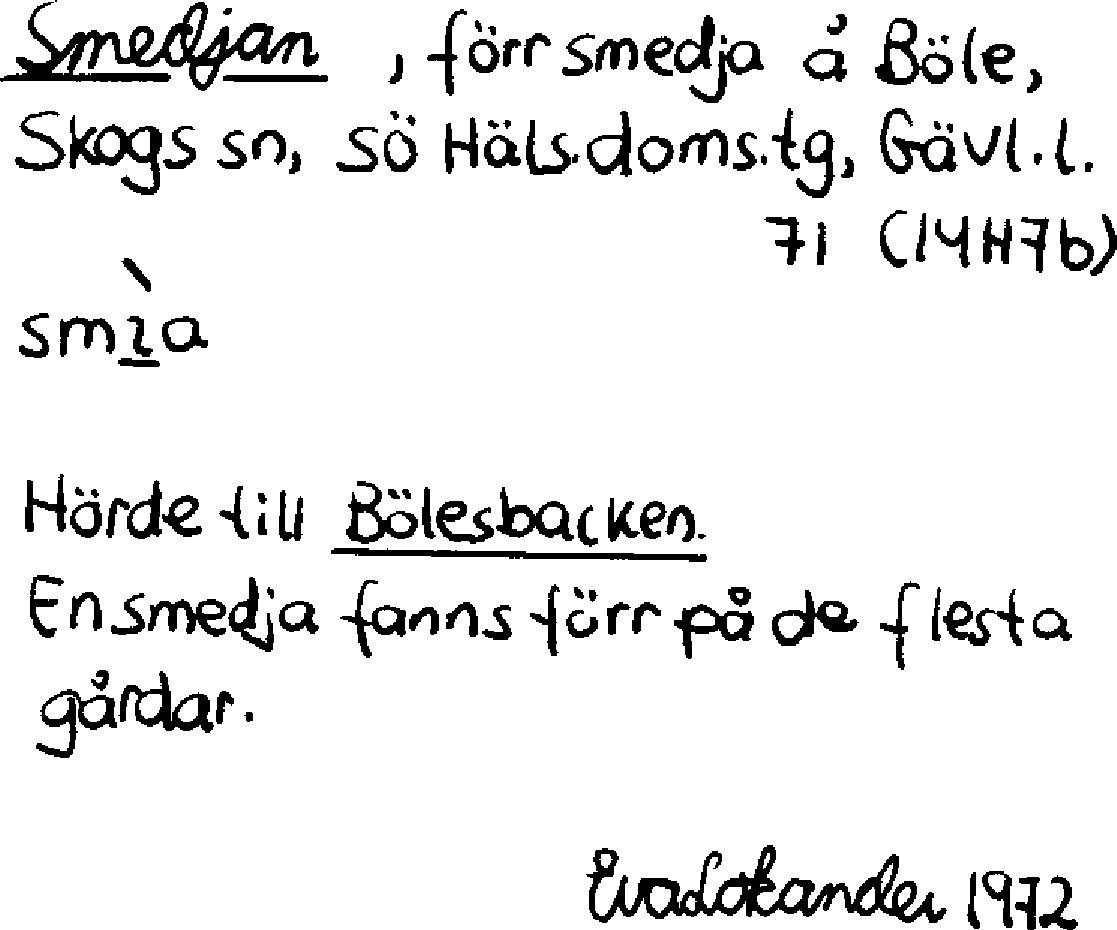 Smedjan, förr smedja å Böle,
Skogs sn, sö Häls. doms. tg, Gävl. l.
71 (14H7b)
smìa
Hörde till Bölesbacken.
En smedja fanns förr på de flesta
gårdar.
Eva Lokander 1972